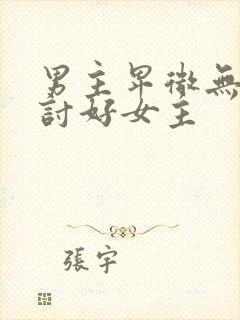 男主卑微無
討好女主
張宇